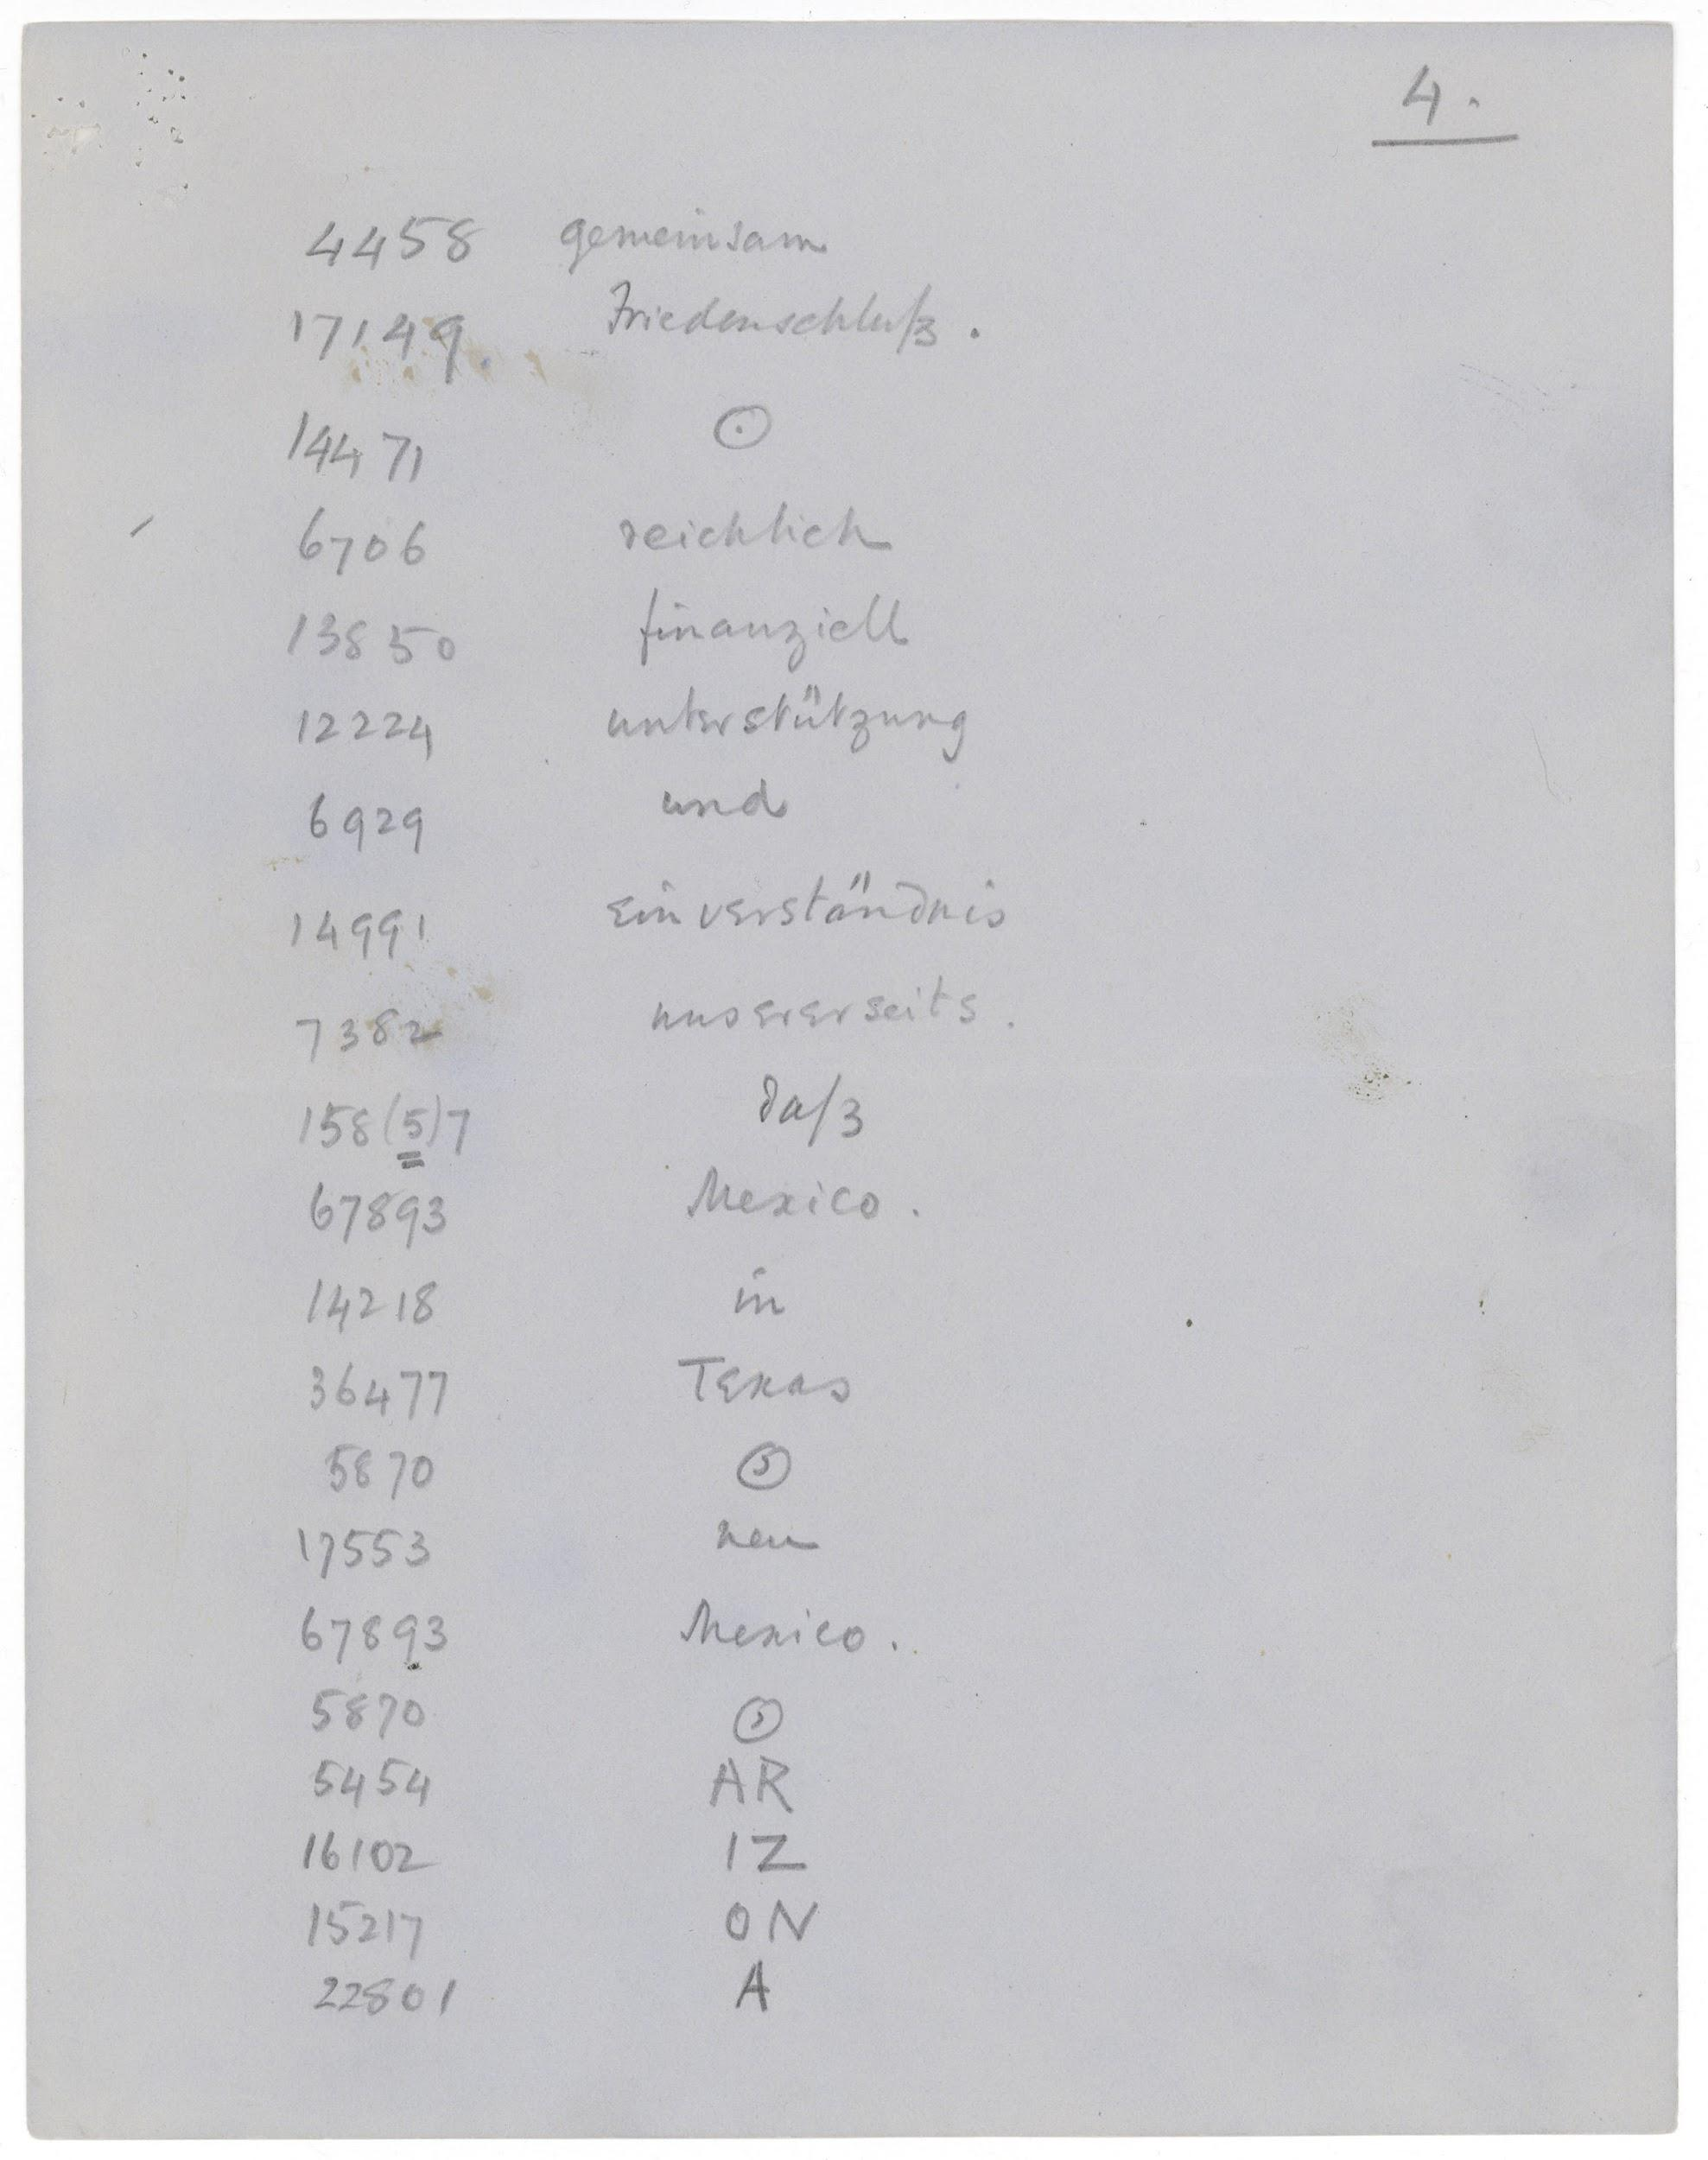 4.
4458 gemeinsam
17149 Friedenschluß.
14471 ⊙
6706 reichlich
13850 finanziell
12224 unterstützung
6929 und
14991 Einverständnis
7382 unsererseits.
158(5)7 daß
67893 Mexico.
14218 in
36477 Texas
5870 ,
17553 neu
67893 Mexico.
5870 ,
5454 AR
16102 IZ
15217 ON
22801 A